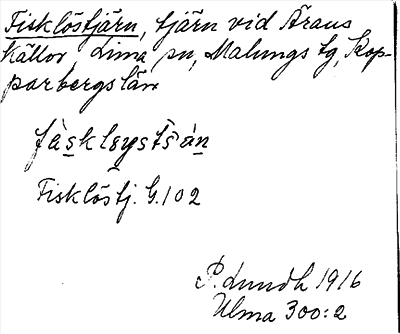 Fisklöstjärn, tjärn vid Äraus
källor, Lima sn, Malungs tg, Kop-
parbergs län
Fisklöstj. G. 102
P. Lundh 1916
Ulma 300:2